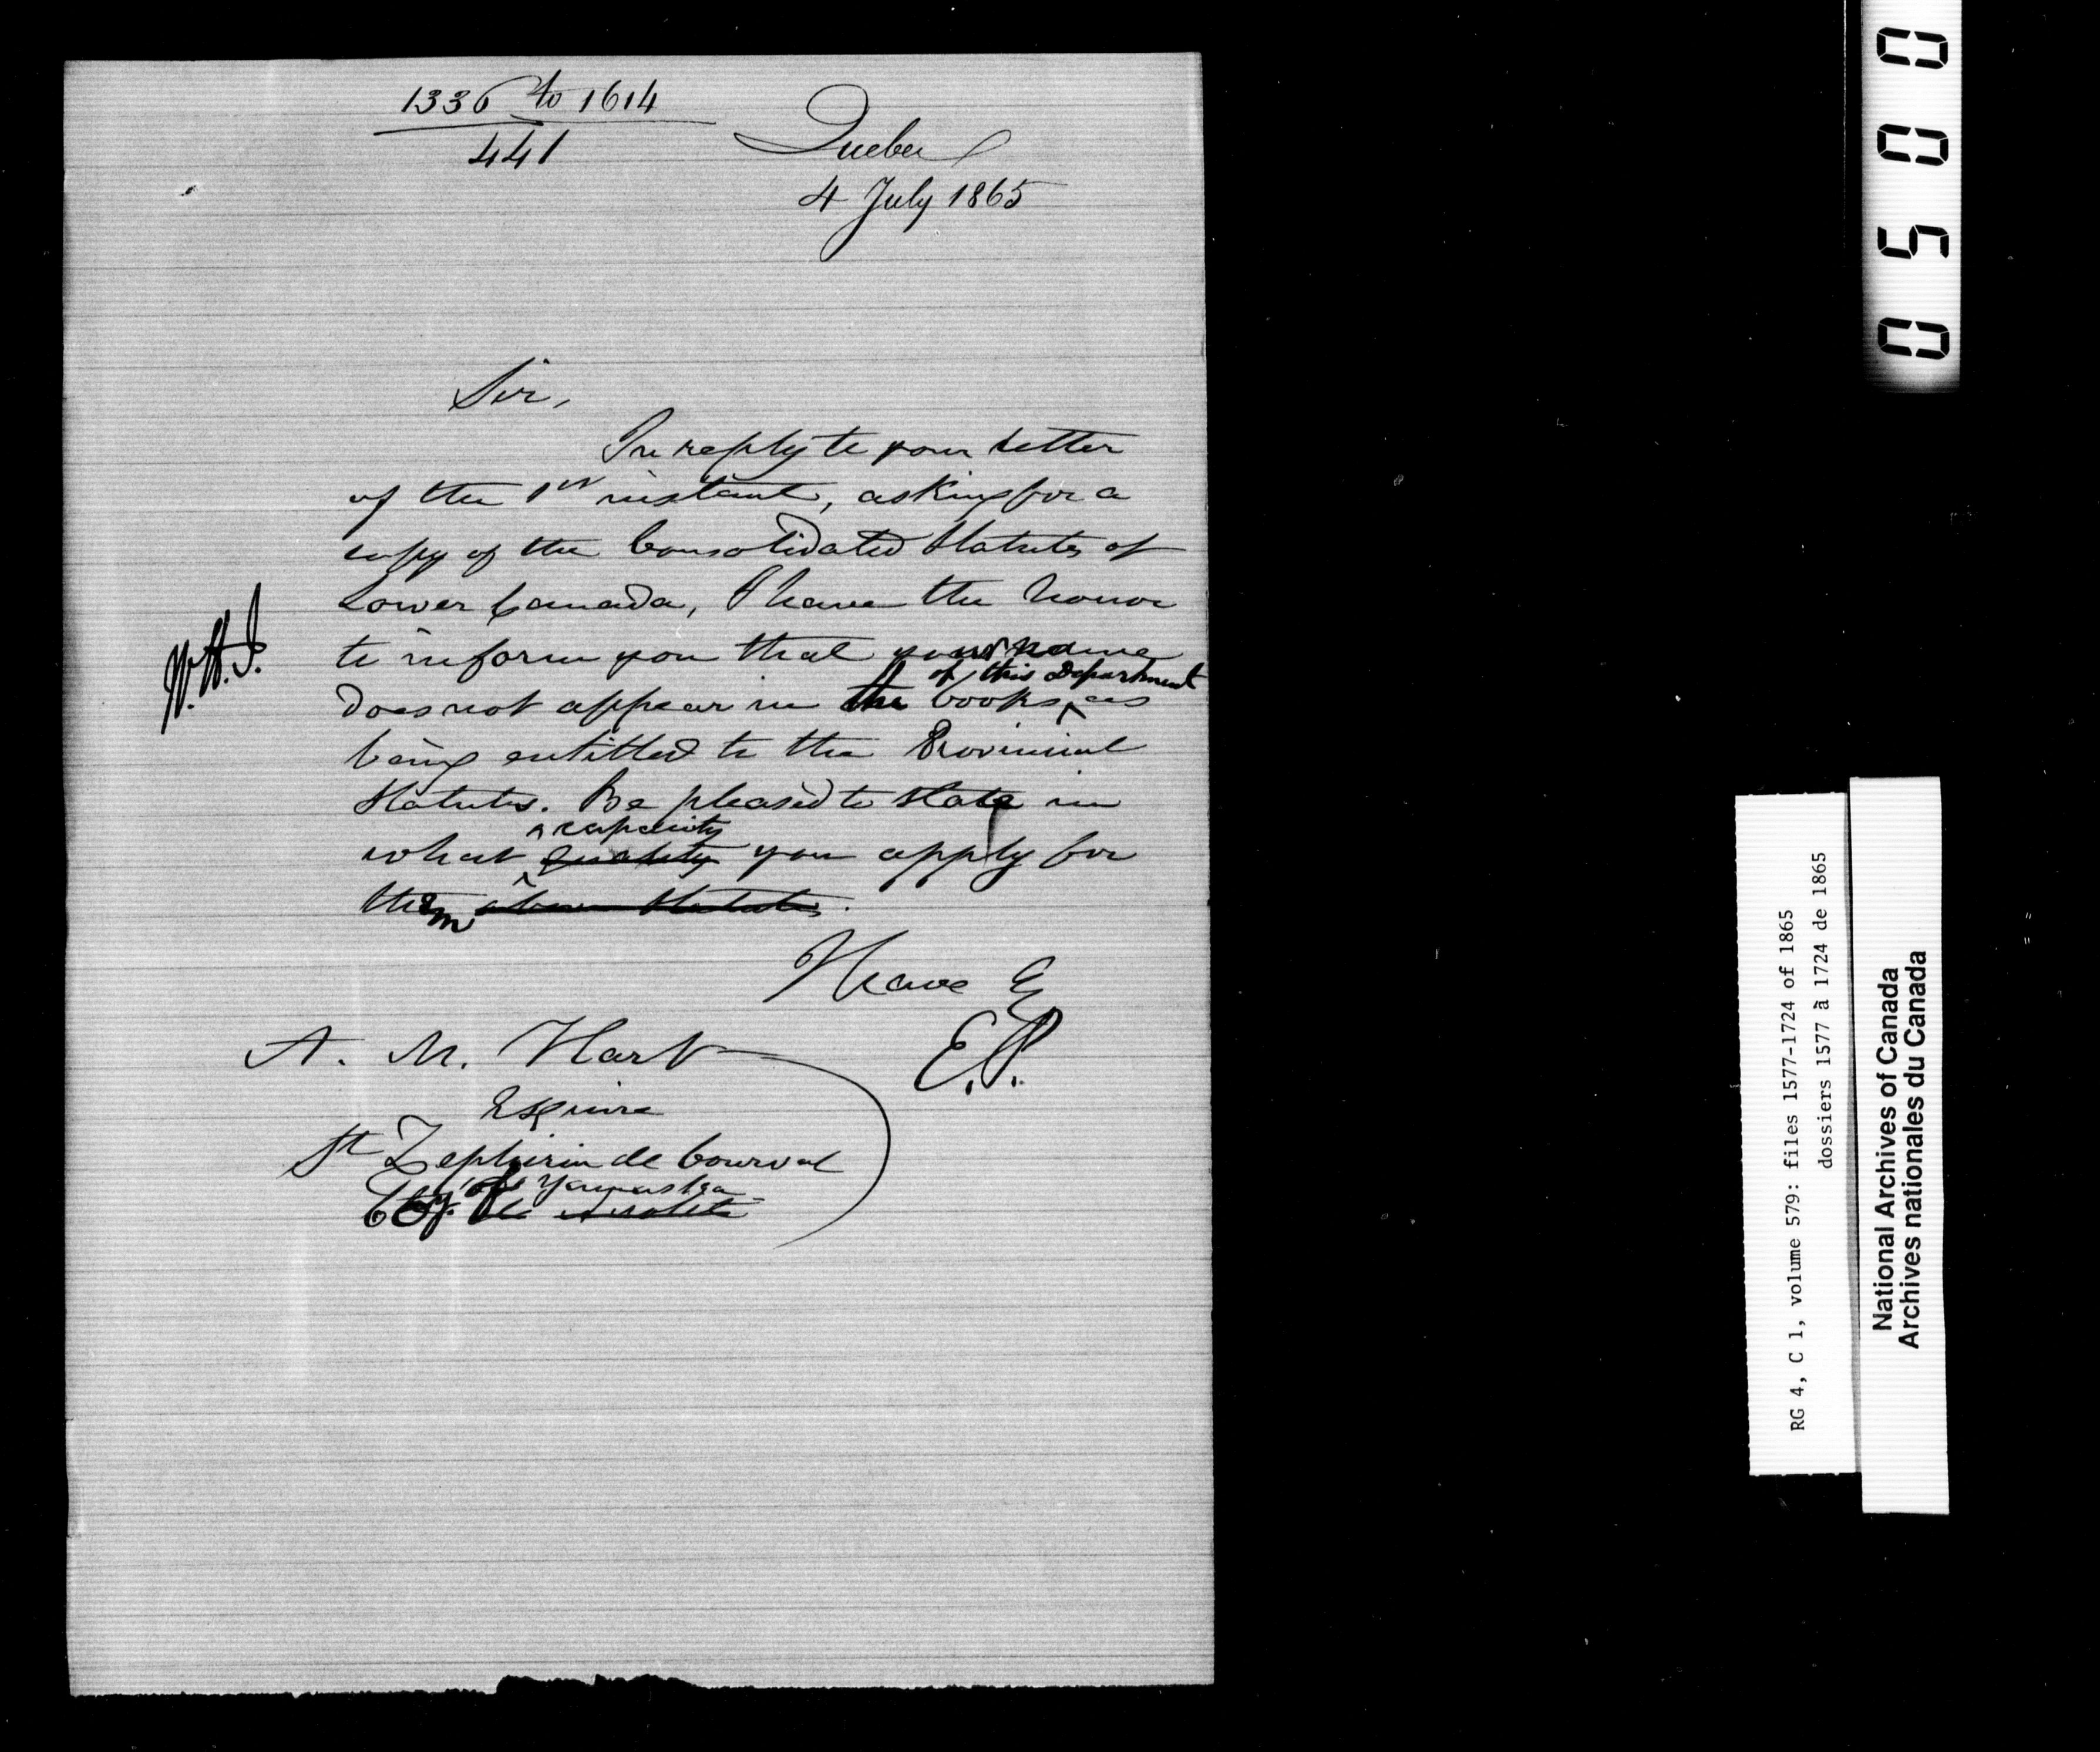 1336 to 1614
441
Quebec
4 July 1865
Sir,
In reply to your letter
of the 1st instant, asking for a
copy of the Consolidated Statutes of
Lower Canada, I have the honor
to inform you that your name
of this Department
does not appear in the books, as
being entitled to the Provincial
Statutes. Be pleased to state in
capacity
what quality you apply for
them above Statutes.
W.H.J.
Have &
E.P.
A. M. Hart
Esquire
St Zephirin de Courval
of Yamaska
Cty.
0500
RG 4, C 1, volume 579: files 1577-1724 of 1865
dossiers 1577 à 1724 de 1865
National Archives of Canada
Archives nationales du Canada